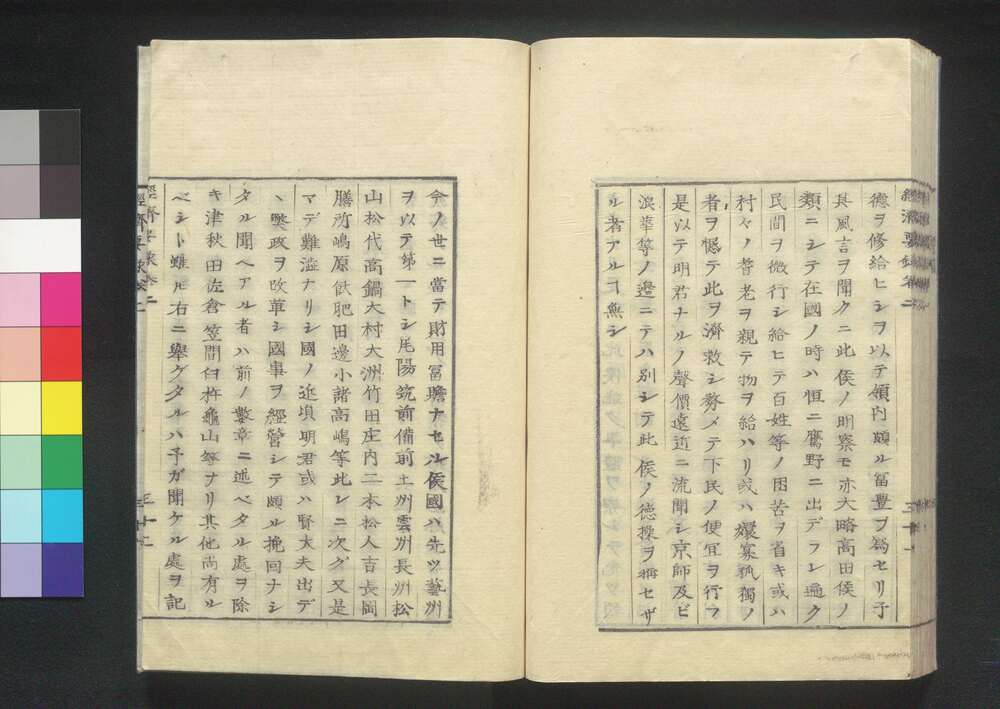 經濟要録卷二
德ヲ修給ヒシヲ以テ領内頗ル富豊ヲ爲セリ予
其風言ヲ聞クニ此侯ノ明察モ亦大略高田侯ノ
類ニシテ在國ノ時ハ恒ニ鷹野ニ出デラレ遍ク
民間ヲ微行シ給ヒテ百姓等ノ困苦ヲ省キ或ハ
村々ノ耆老ヲ親テ物ヲ給ハリ或ハ鰥寡孤獨ノ
者ヲ憾テ此ヲ濟救シ務メテ下民ノ便宜ヲ行フ
是以テ明君ナルノ聲價遠近ニ流聞シ京師及ビ
浪華等ノ邉ニテハ別シテ此侯ノ德操ヲ稱セザ
ル者アルヿ無シ
今ノ世ニ當テ財用冨贍ナセル侯國ハ先ツ藝州
ヲ以テ第一トシ尾陽筑前備前土州雲州長州松
山松代高鍋大村大洲竹田庄内二本松人吉長岡
膳所嶋原飫肥田邊小諸高嶋等此レニ次グ又是
マデ難澁ナリシ國ノ近塤明君或ハ賢大夫出デ
丶獘政ヲ改革シ國事ヲ經營シテ頗ル挽回ナシ
タル聞ヘアル者ハ前ノ數章ニ述ベタル處ヲ除
キ津秋田佐倉笠間臼杵龜山等ナリ其他尚有ル
ベシト雖ル右ニ舉グタルハ予ガ聞ケル處ヲ記
經濟要録卷二